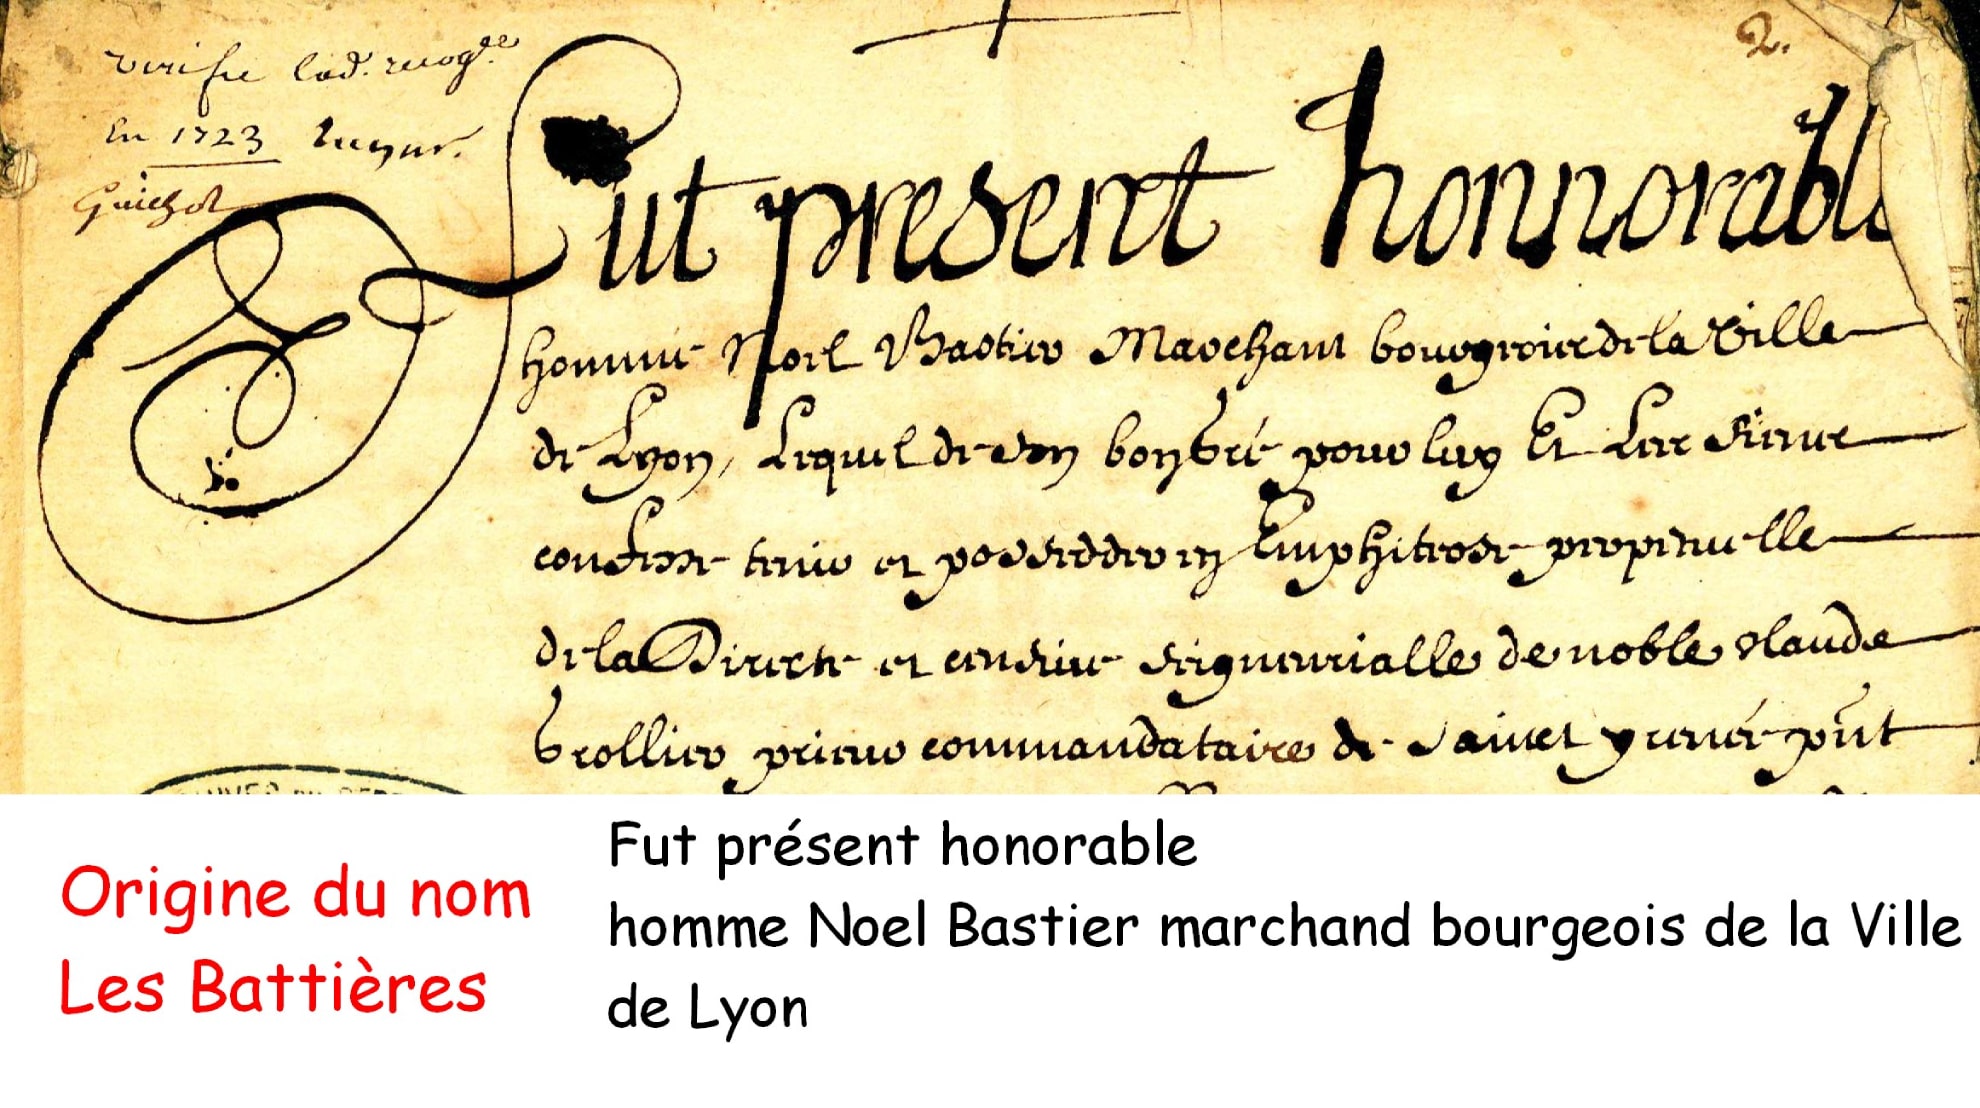 verifie lad. recog.ce
2.
En 1723
Guichot
Fut present honnorable
homme Noel Bastier Marchant bourgeois de la Ville
de Lyon, Lequel de son bon Gré pour luy Et Les siens
confesse tenir et possedder en Emphiteose perpetuelle
de la Directe et censive seigneurialle de noble Claude
Grollier prieur commandataire de sainct yrenée pnt
Origine du nom
Les Battières
Fut présent honorable
homme Noel Bastier marchand bourgeois de la Ville
de Lyon